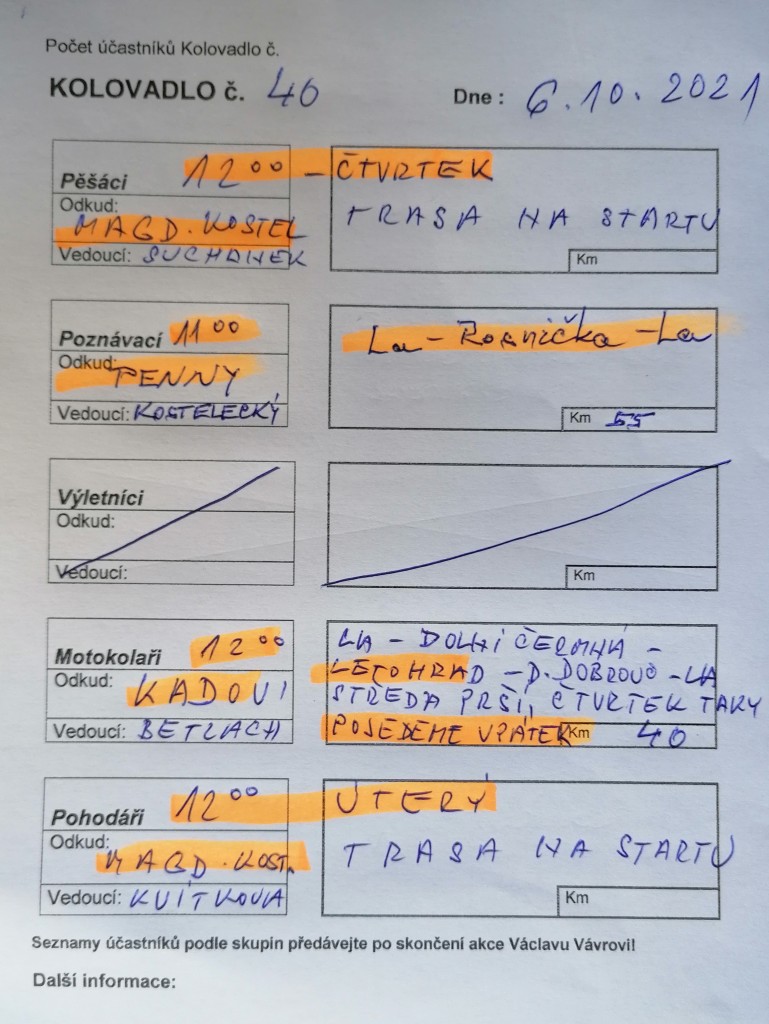 Počet účastníků Kolovadlo č.
KOLOVADLO č. 40 Dne : 6.10.2021
Pěšáci 12 00 - ČTVRTEK
Odkud: MAGD. KOSTEL
TRASA NA STARTU
Vedoucí: SUCHANEK
Km
Poznávací 11 00
La - Rosnička - La
Odkud: PENNY
Vedoucí: KOSTELECKÝ
Km 55
Výletníci
Odkud:
Vedoucí:
Km
Motokolaři 12 00
LA - DOLNÍ ČERMNÁ -
Odkud: KADOVI
LETOHRAD - D. DOBROUČ - LA
STŘEDA PRŠÍ, ČTVRTEK TAKY
Vedoucí: BETLACH
POJEDEME V PÁTEK Km 40
Pohodáři 12 00 ÚTERÝ
Odkud: MAGD. KOST.
TRASA NA STARTU
Vedoucí: KVÍTKOVÁ
Km
Seznamy účastníků podle skupin předávejte po skončení akce Václavu Vávrovi!
Další informace: